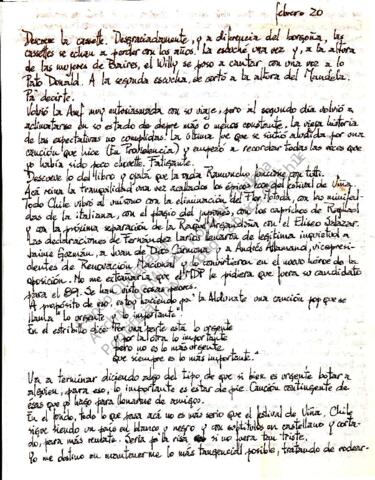 febrero 20
Descose la cassette. Desgraciadamente, y a diferencia del borgoña, las
cassettes se echan a perder con los años. La escuché una vez y, a la altura
de las mujeres de Baires, el Willy se puso a cantar con voz a lo
Pato Donald. A la segunda escucha, se cortó a la altura del Mandela.
Pa' decirte.
Volvió la muy entusiasmada con su viaje, pero al segundo día volvió a
aclimatarse en su estado de depre más o menos constante. La vieja historia
de las expectativas no cumplidas. La última fue que se sintió aludida por una
canción que hice (En Trovolencia) y empezó a recordar todas las veces que
yo había sido poco Fatigante.
Descuere lo del libro y ojalá que la radio Ramuncho funcione con tuti.
Acá reina la tranquilidad una vez acallados los ecos del festival de Viña.
Todo Chile vibró al unísono con la eliminación de Florcita, con las
de la italiana, con el plagio del japonés, con los caprichos de Raphael
y con la próxima separación de la Raquel Argandoña con el Eliseo Salazar.
Las declaraciones de Fernández Larios llenaron de legítima inquietud a
Jaime Guzmán, a Juan de Dios Carmona y a Andrés Allamand, vicepresi-
dentes de Renovación Nacional y lo convirtieron en el nuevo héroe de la
oposición. No me extrañaría que el MDP le pidiera que fuera su candidato
para el 89. Se han visto cosas peores.
A propósito de eso, estoy haciendo pa' la Aldunate una canción pop que se
llama "lo urgente y lo importante".
En el estribillo dice: Por una parte está lo urgente
por la otra lo importante
pero no es lo más urgente
que siempre es lo más importante.
Va a terminar diciendo algo del tipo de que si bien es urgente botar a
alguien, para eso, lo importante es estar de pie. Canción contingente de
esas que yo hago para llenarme de amigos.
En el fondo, todo lo que pasa acá no es más serio que el festival de Viña. Chile
sigue siendo un país en blanco y negro y con subtítulos en castellano y corta-
do, para más remate. Sería pa' la risa si no fuera tan triste.
Yo me obstino en mantenerme lo más tangencial posible, tratando de rodear-